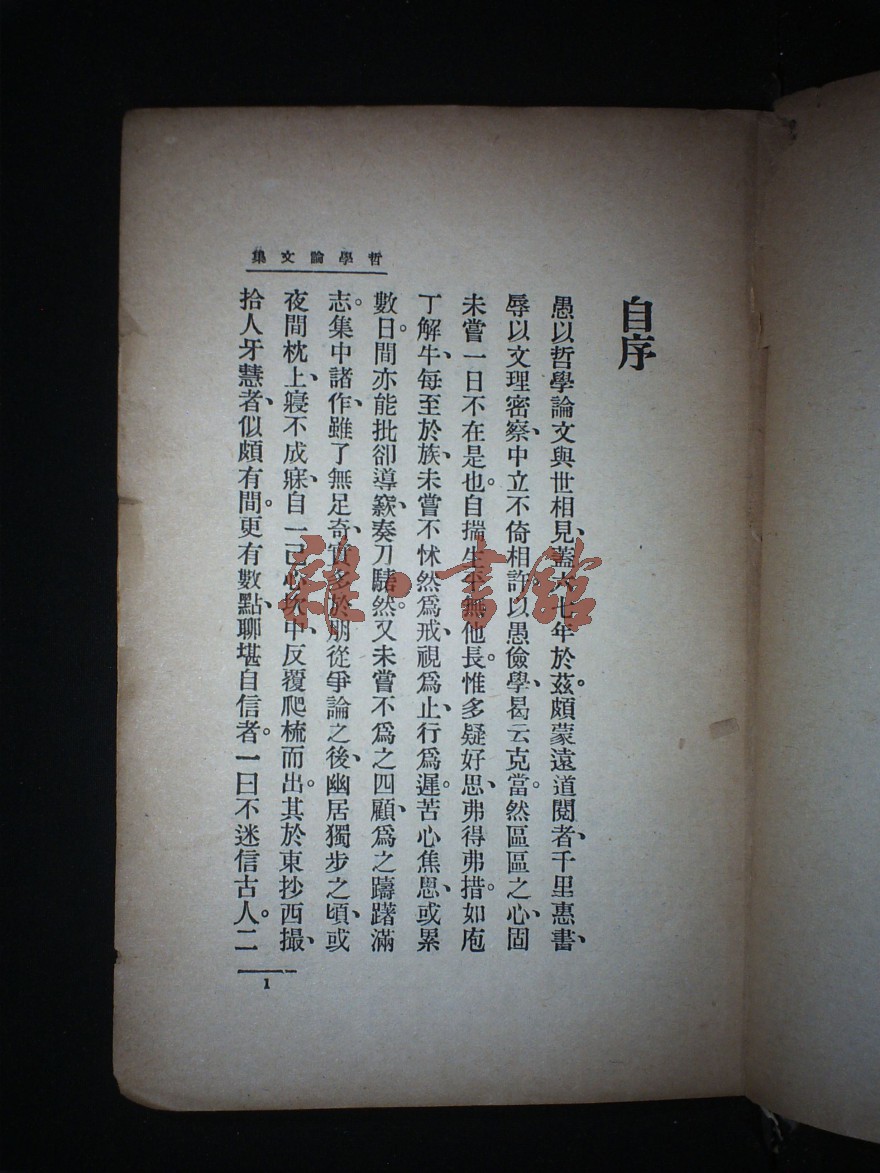 自序
愚以哲學論文與世相見、蓋六七年於茲。頗蒙遠道閱者、千里惠書、
辱以文理密察、中立不倚相許。以愚儉學、曷云克當。然區區之心、固
未嘗一日不在是也。自揣生平無他長。惟多疑好思、弗得弗措。如庖
丁解牛、每至於族、未嘗不怵然爲戒、視爲止、行爲遲。苦心焦思、或累
數日。間亦能批卻導窾、奏刀騞然。又未嘗不爲之四顧、爲之躊躇滿
志。集中諸作、雖了無足奇、實多於朋從爭論之後、幽居獨步之頃、或
夜間枕上、寢不成寐、自一己心坎中、反覆爬梳而出。其於東抄西撮、
拾人牙慧者、似頗有間。更有數點、聊堪自信者。一曰不迷信古人。二
哲學論文集
1
雜·書館